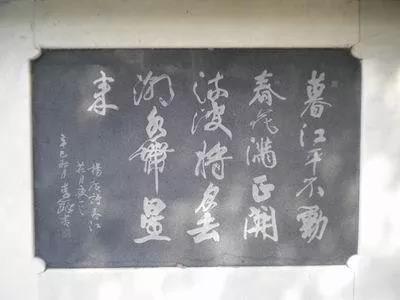 暮江平不動
春花滿正開
流波將月去
潮水帶星
来
楊廣詩春江
花月夜
辛巳